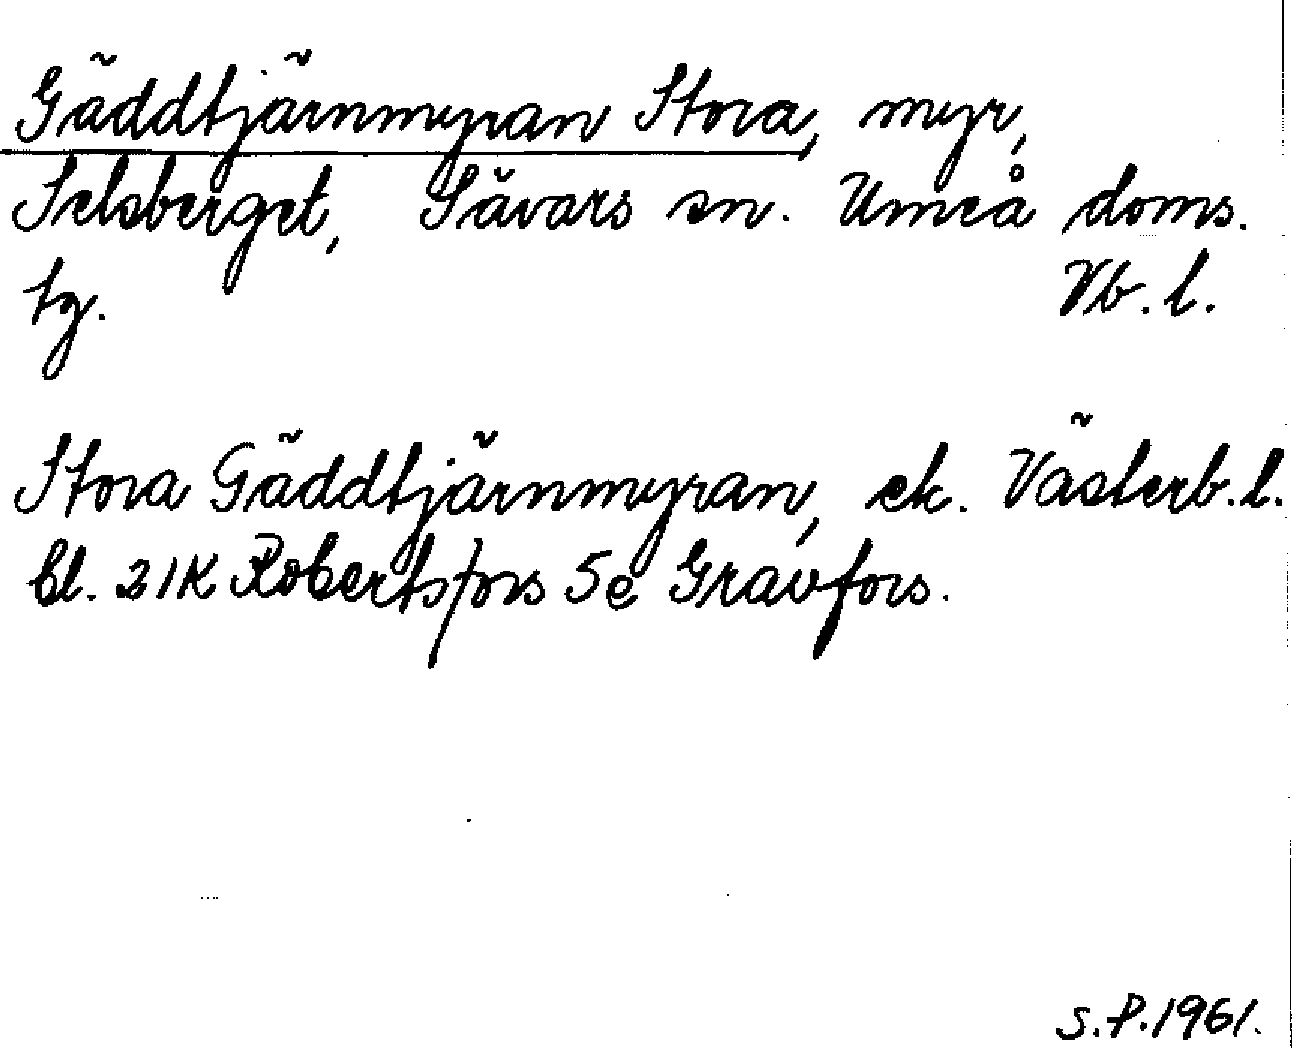 Gäddtjärnmyran Stora, myr,
Selsberget, Sävars sn. Umeå doms.
tg. Vb. l.
Stora Gäddtjärnmyran, ek. Västerb. l.
bl. 21K Robertsfors 5e Gravfors.
S.P. 1961.